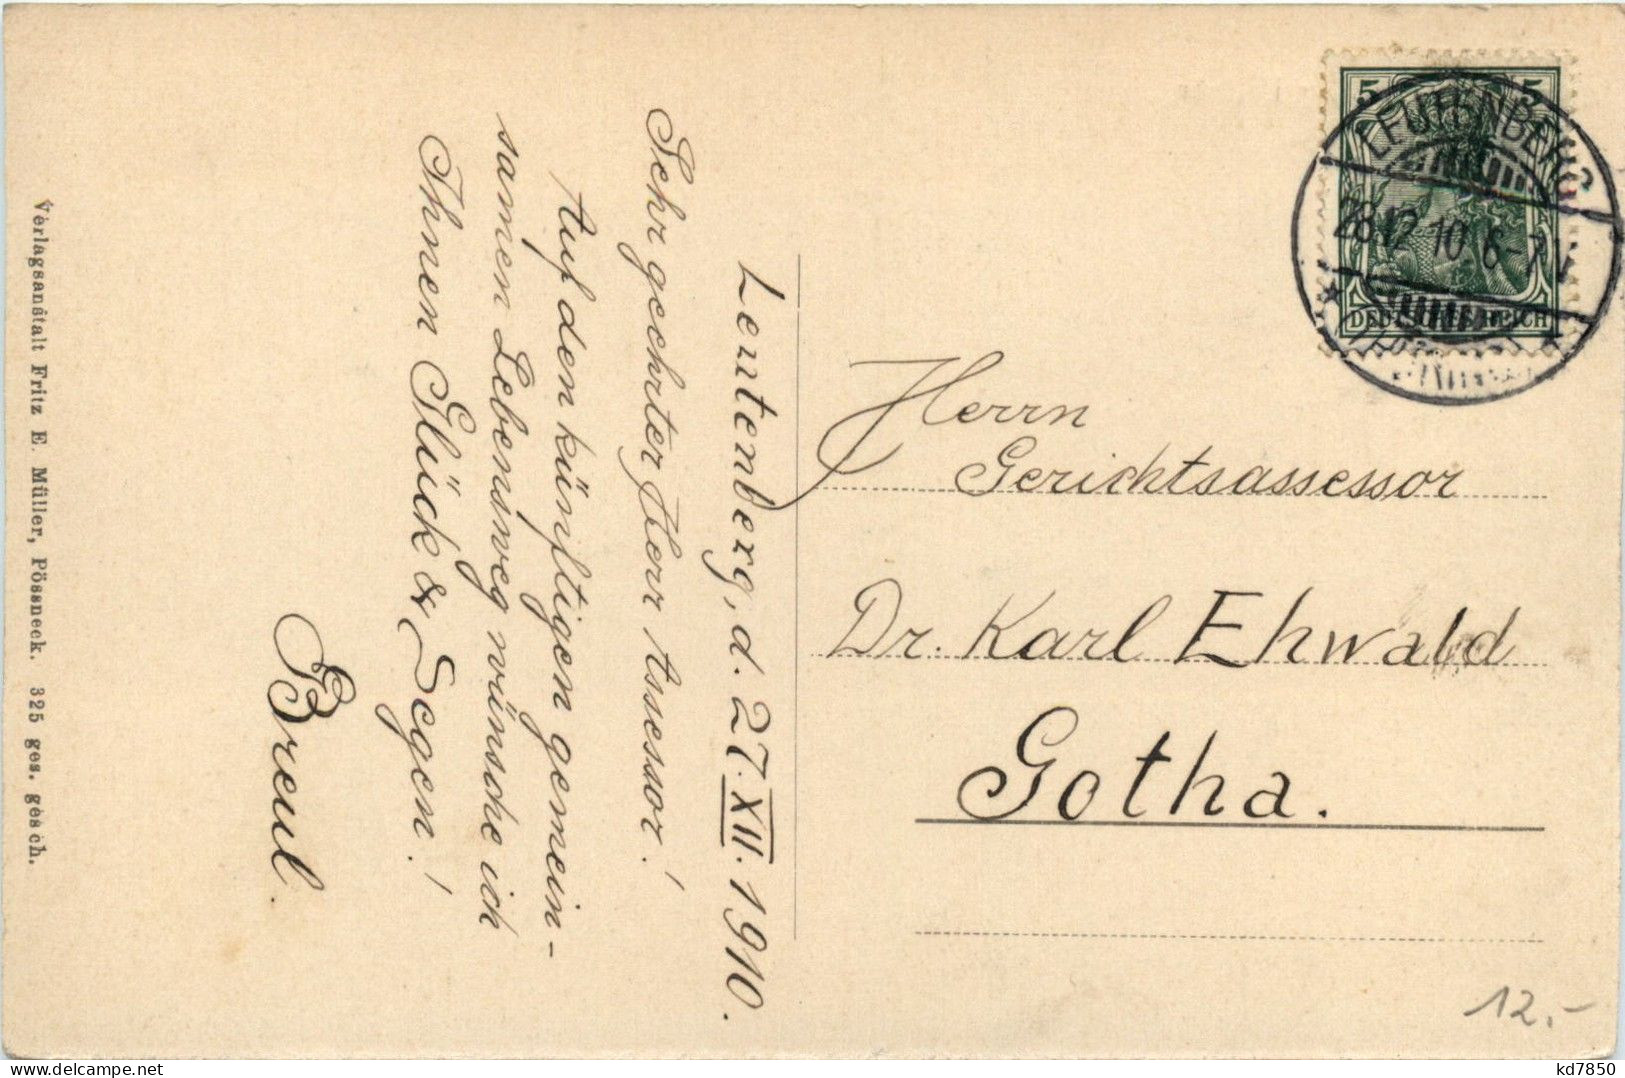 Leutenberg, d. 27. XII. 1910.
Sehr geehrter Herr Assessor!
Auf den künftigen gemein-
samen Lebensweg wünsche ich
Ihnen Glück & Segen!
Breul.
Verlagsanstalt Fritz E. Müller, Pössneck. 325 ges. gesch.
5 5
DEUTSCHES REICH
LEUTENBERG
28.12.10 6-7
Herrn
Gerichtsassessor
Dr. Karl Ehwald
Gotha.
12.-
kd7850